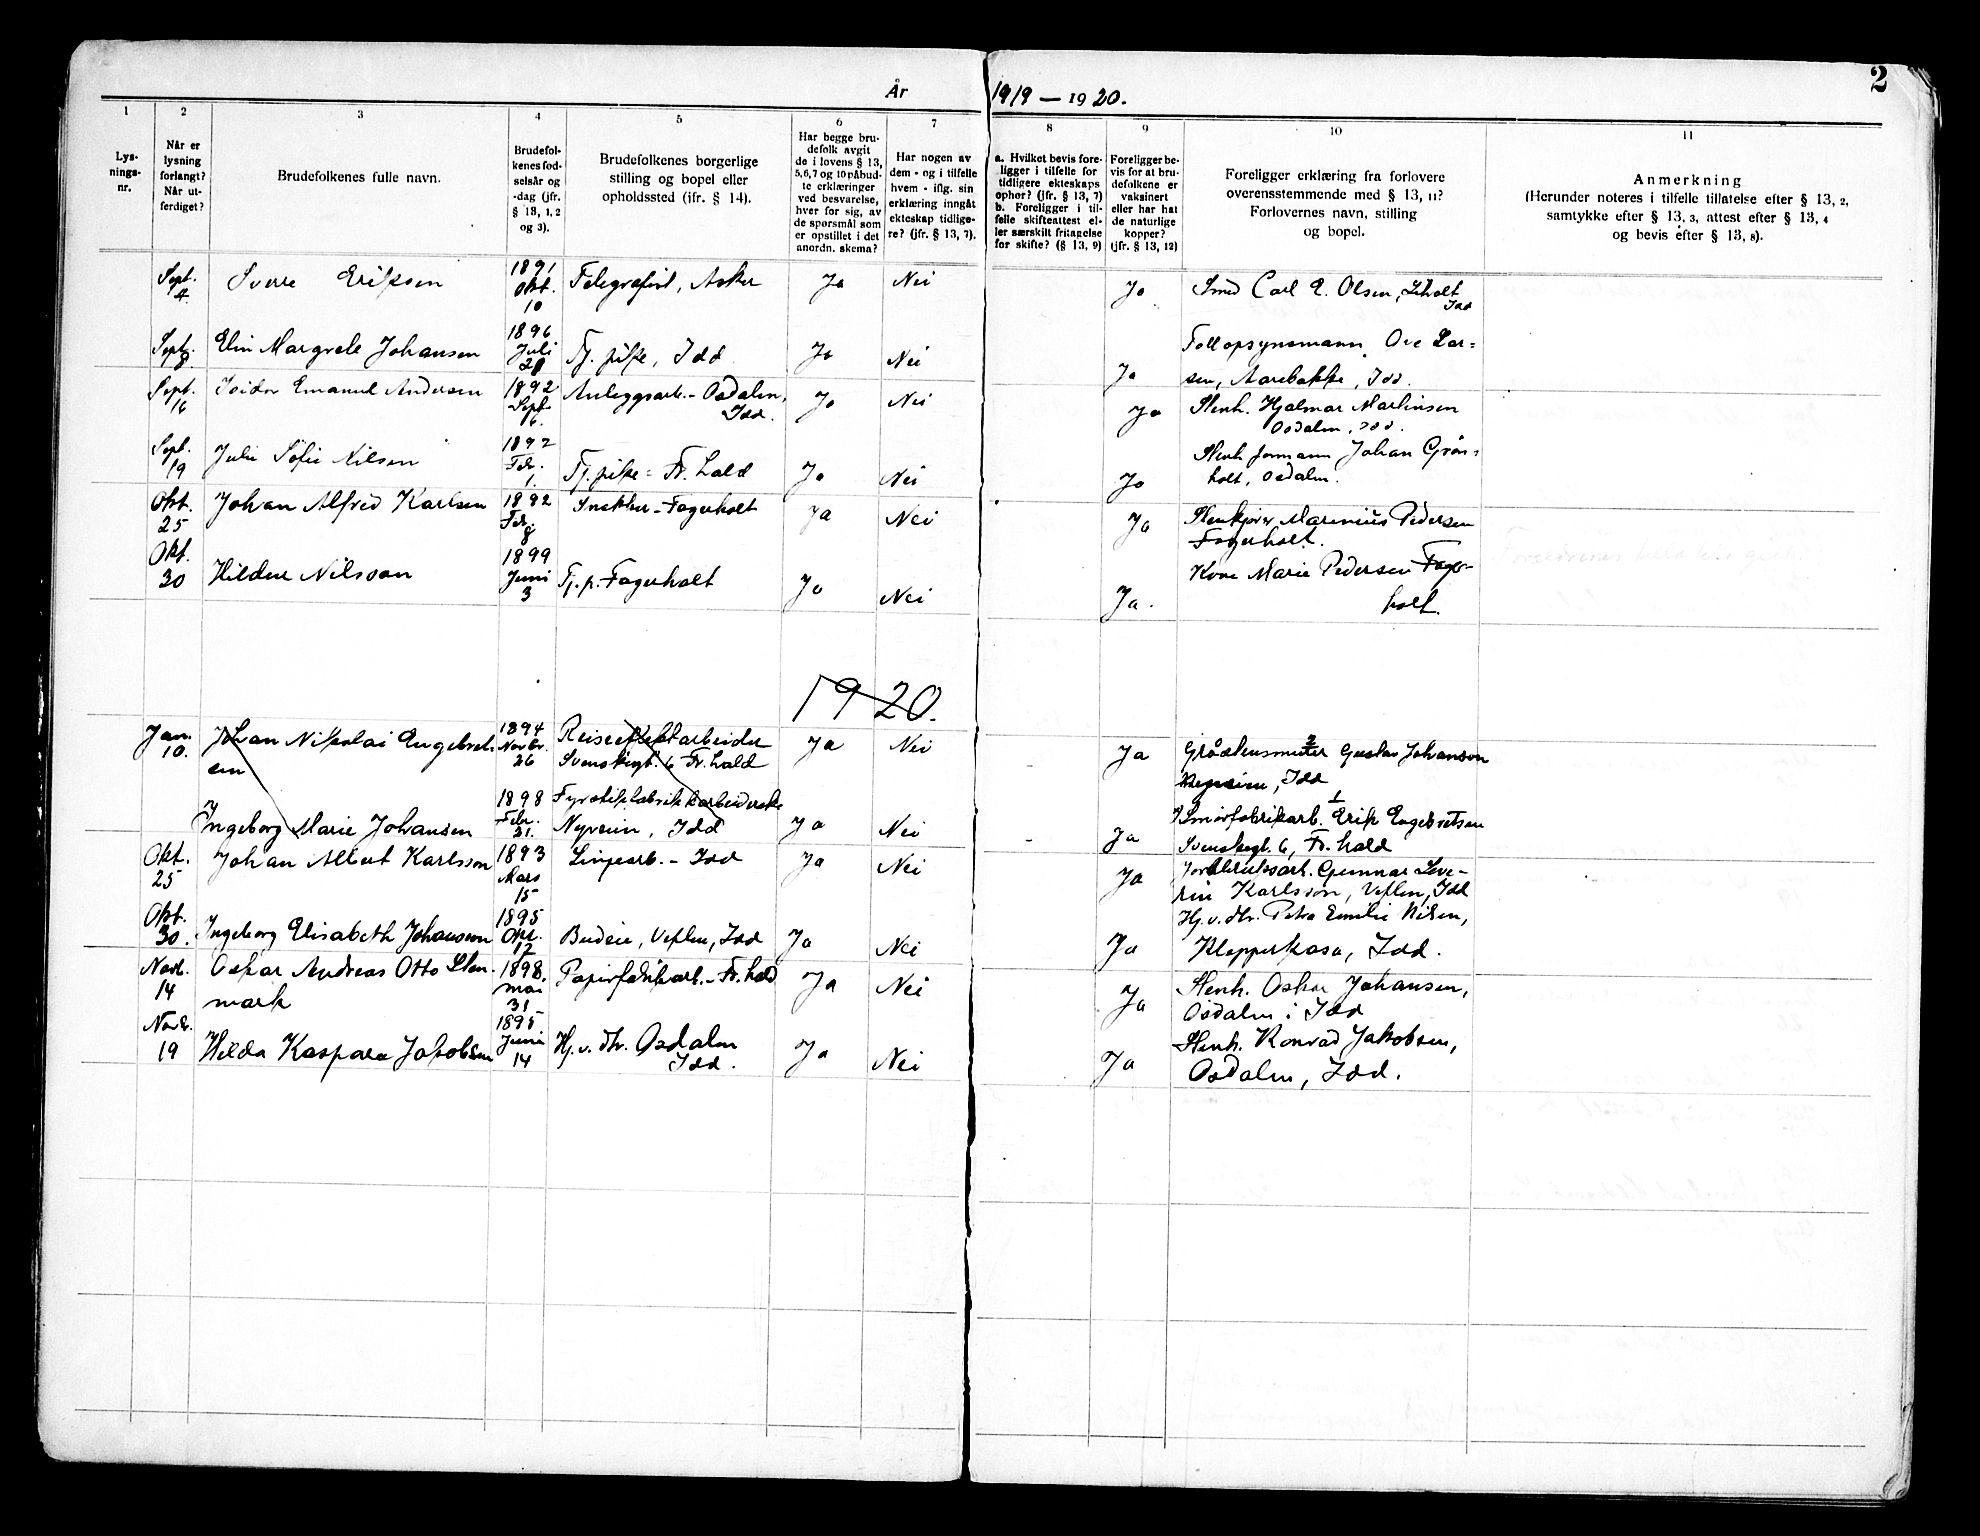 2
År 1919 — 1920.
1 2 3 4 5 6 7 8 9 10 11
Lys-
nings-
nr.
Når er
lysning
forlangt?
Når ut-
ferdiget?
Brudefolkenes fulle navn.
Brudefol-
kenes fød-
selsår og
-dag (jfr.
§ 13, 1, 2
og 3).
Brudefolkenes borgerlige
stilling og bopel eller
opholdssted (jfr. § 14).
Har begge bru-
defolk avgit
de i lovens § 13,
5,6,7 og 10 påbud-
te erklæringer
ved besvarelse,
hver for sig, av
de spørsmål som
er opstillet i det
anordn. skema?
Har nogen av
dem - og i tilfelle
hvem - iflg. sin
erklæring inngått
ekteskap tidlige-
re? (jfr. § 13, 7).
a. Hvilket bevis fore-
ligger i tilfelle for
tidligere ekteskaps
ophør? (jfr. § 13, 7)
b. Foreligger i til-
felle skifteattest el-
ler særskilt fritagelse
for skifte? (§ 13, 9)
Foreligger be-
vis for at bru-
defolkene er
vaksinert
eller har hat
de naturlige
kopper?
(jfr. § 13, 12)
Foreligger erklæring fra forlovere
overensstemmende med § 13, 11?
Forlovernes navn, stilling
og bopel.
Anmerkning
(Herunder noteres i tilfelle tillatelse efter § 13, 2,
samtykke efter § 13, 3, attest efter § 13, 4
og bevis efter § 13, 8).
Sept. 4 Sverre Eriksen 1891 Okt. 10 Telegrafist, Asker Ja Nei Ja Smed Carl E. Olsen,
Idd
Sept. 8 Elin Margrete Johansen 1896 Juli 28 Tj. pike, Idd Ja Nei Ja Tollopsynsmann Ove Lar-
sen, Aarebakke, Idd.
Sept. 16 Isidor Emanuel Andersen 1892 Sept. 16. Anleggsarb. - Osdalen,
Idd. Ja Nei Ja Stenh. Hjalmar Martinsen
Osdalen, Idd.
Sept. 19 Julie Sofie Nilsen 1892 Febr. 1. Tj. pike - Fr.hald Ja Nei Ja Stenh. formann Johan Grøn-
holt, Osdalen.
Okt. 25 Johan Alfred Karlsen 1892 Febr. 8 Snekker - Fagerholt Ja Nei Ja Stenkjører Marenius Pedersen
Fagerholt.
Okt. 30 Hildur Nilsson 1899 Juni 3 Tj. p. Fagerholt Ja Nei Ja. Kone Marie Pedersen Fager-
holt.
1920.
Jan. 10. Johan Nikolai Engebret-
sen 1894 Novbr. 26 Reiseeffektarbeider
Svenskegt. 6 Fr.hald Ja Nei Ja Gråstensmuter 2 Gustav Johanson
Nyveien, Idd
Ingeborg Marie Johansen 1898 Febr. 21. Fyrstikfabrikkarbeiderske
Nyveien, Idd Ja Nei Ja 1 Smørfabrikarb. Erik Engebretsen
Svenskegt. 6, Fr.hald
Okt. 25 Johan Albert Karlsson 1893 Mars 15 Linjearb. - Idd Ja Nei Ja Jordbruksarb. Gunnar Seve-
rin Karlsson, Veflen, Idd
Okt. 30. Ingeborg Elisabeth Johansson 1895 Okt. 12 Budeie, Veflen, Idd Ja Nei Ja Hj. v. dtr. Petra Emilie Nilsen,
Klepperkasa, Idd.
Novb. 14 Oskar Andreas Otto Sten-
mark 1898 mai 31 Papirfabrikarb. - Fr.hald Ja Nei Ja Stenh. Oskar Johansen,
Osdalen i Idd
Novbr. 19 Hilda Kaspara Jakobsen 1895 Juni 14 Hj. v. dtr. Osdalen
Idd. Ja Nei Ja Stenh. Konrad Jakobsen,
Osdalen, Idd.